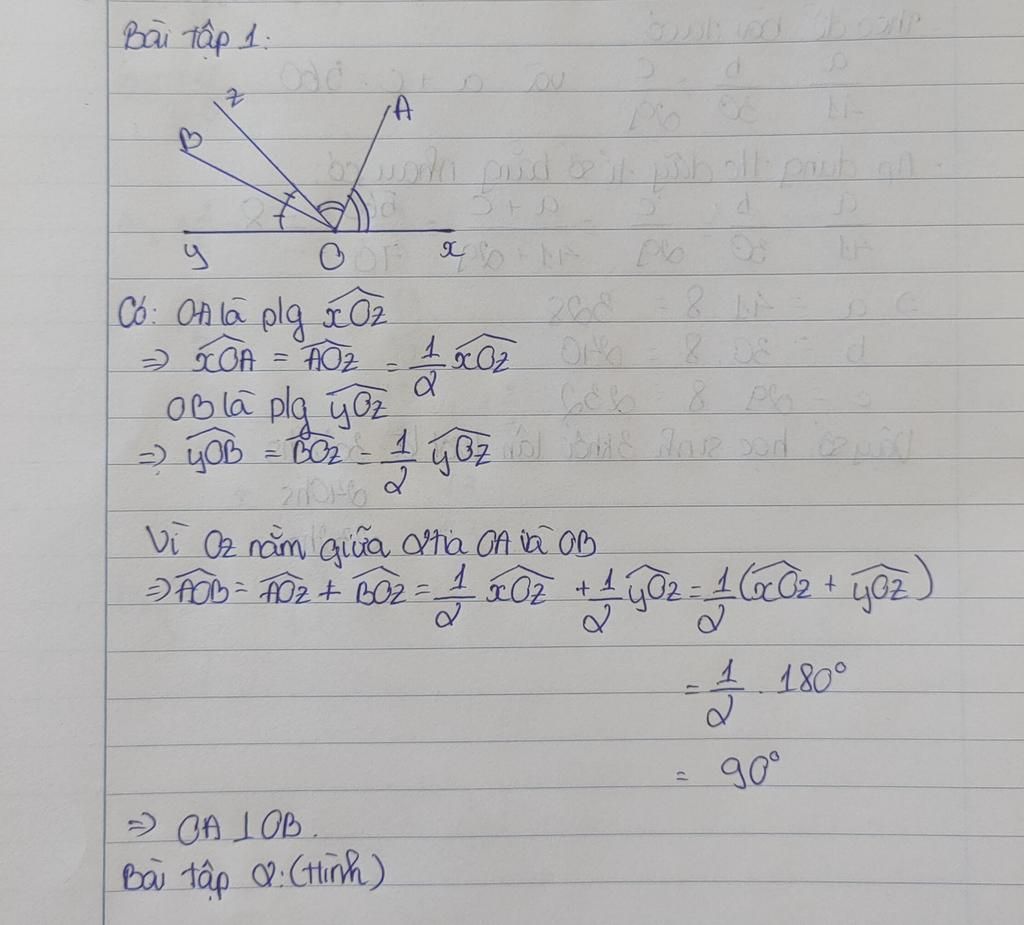 Bài tập 1:
z
A
B
y
O
x
Có: OA là p/g xOz
⇒ xOA = AOz = 1/2 xOz
OB là p/g yOz
⇒ yOB = BOz = 1/2 yOz
Vì Oz nằm giữa 2 tia OA và OB
⇒ AOB = AOz + BOz = 1/2 xOz + 1/2 yOz = 1/2 (xOz + yOz)
= 1/2 . 180°
= 90°
⇒ OA ⊥ OB.
Bài tập 2: (Hình)